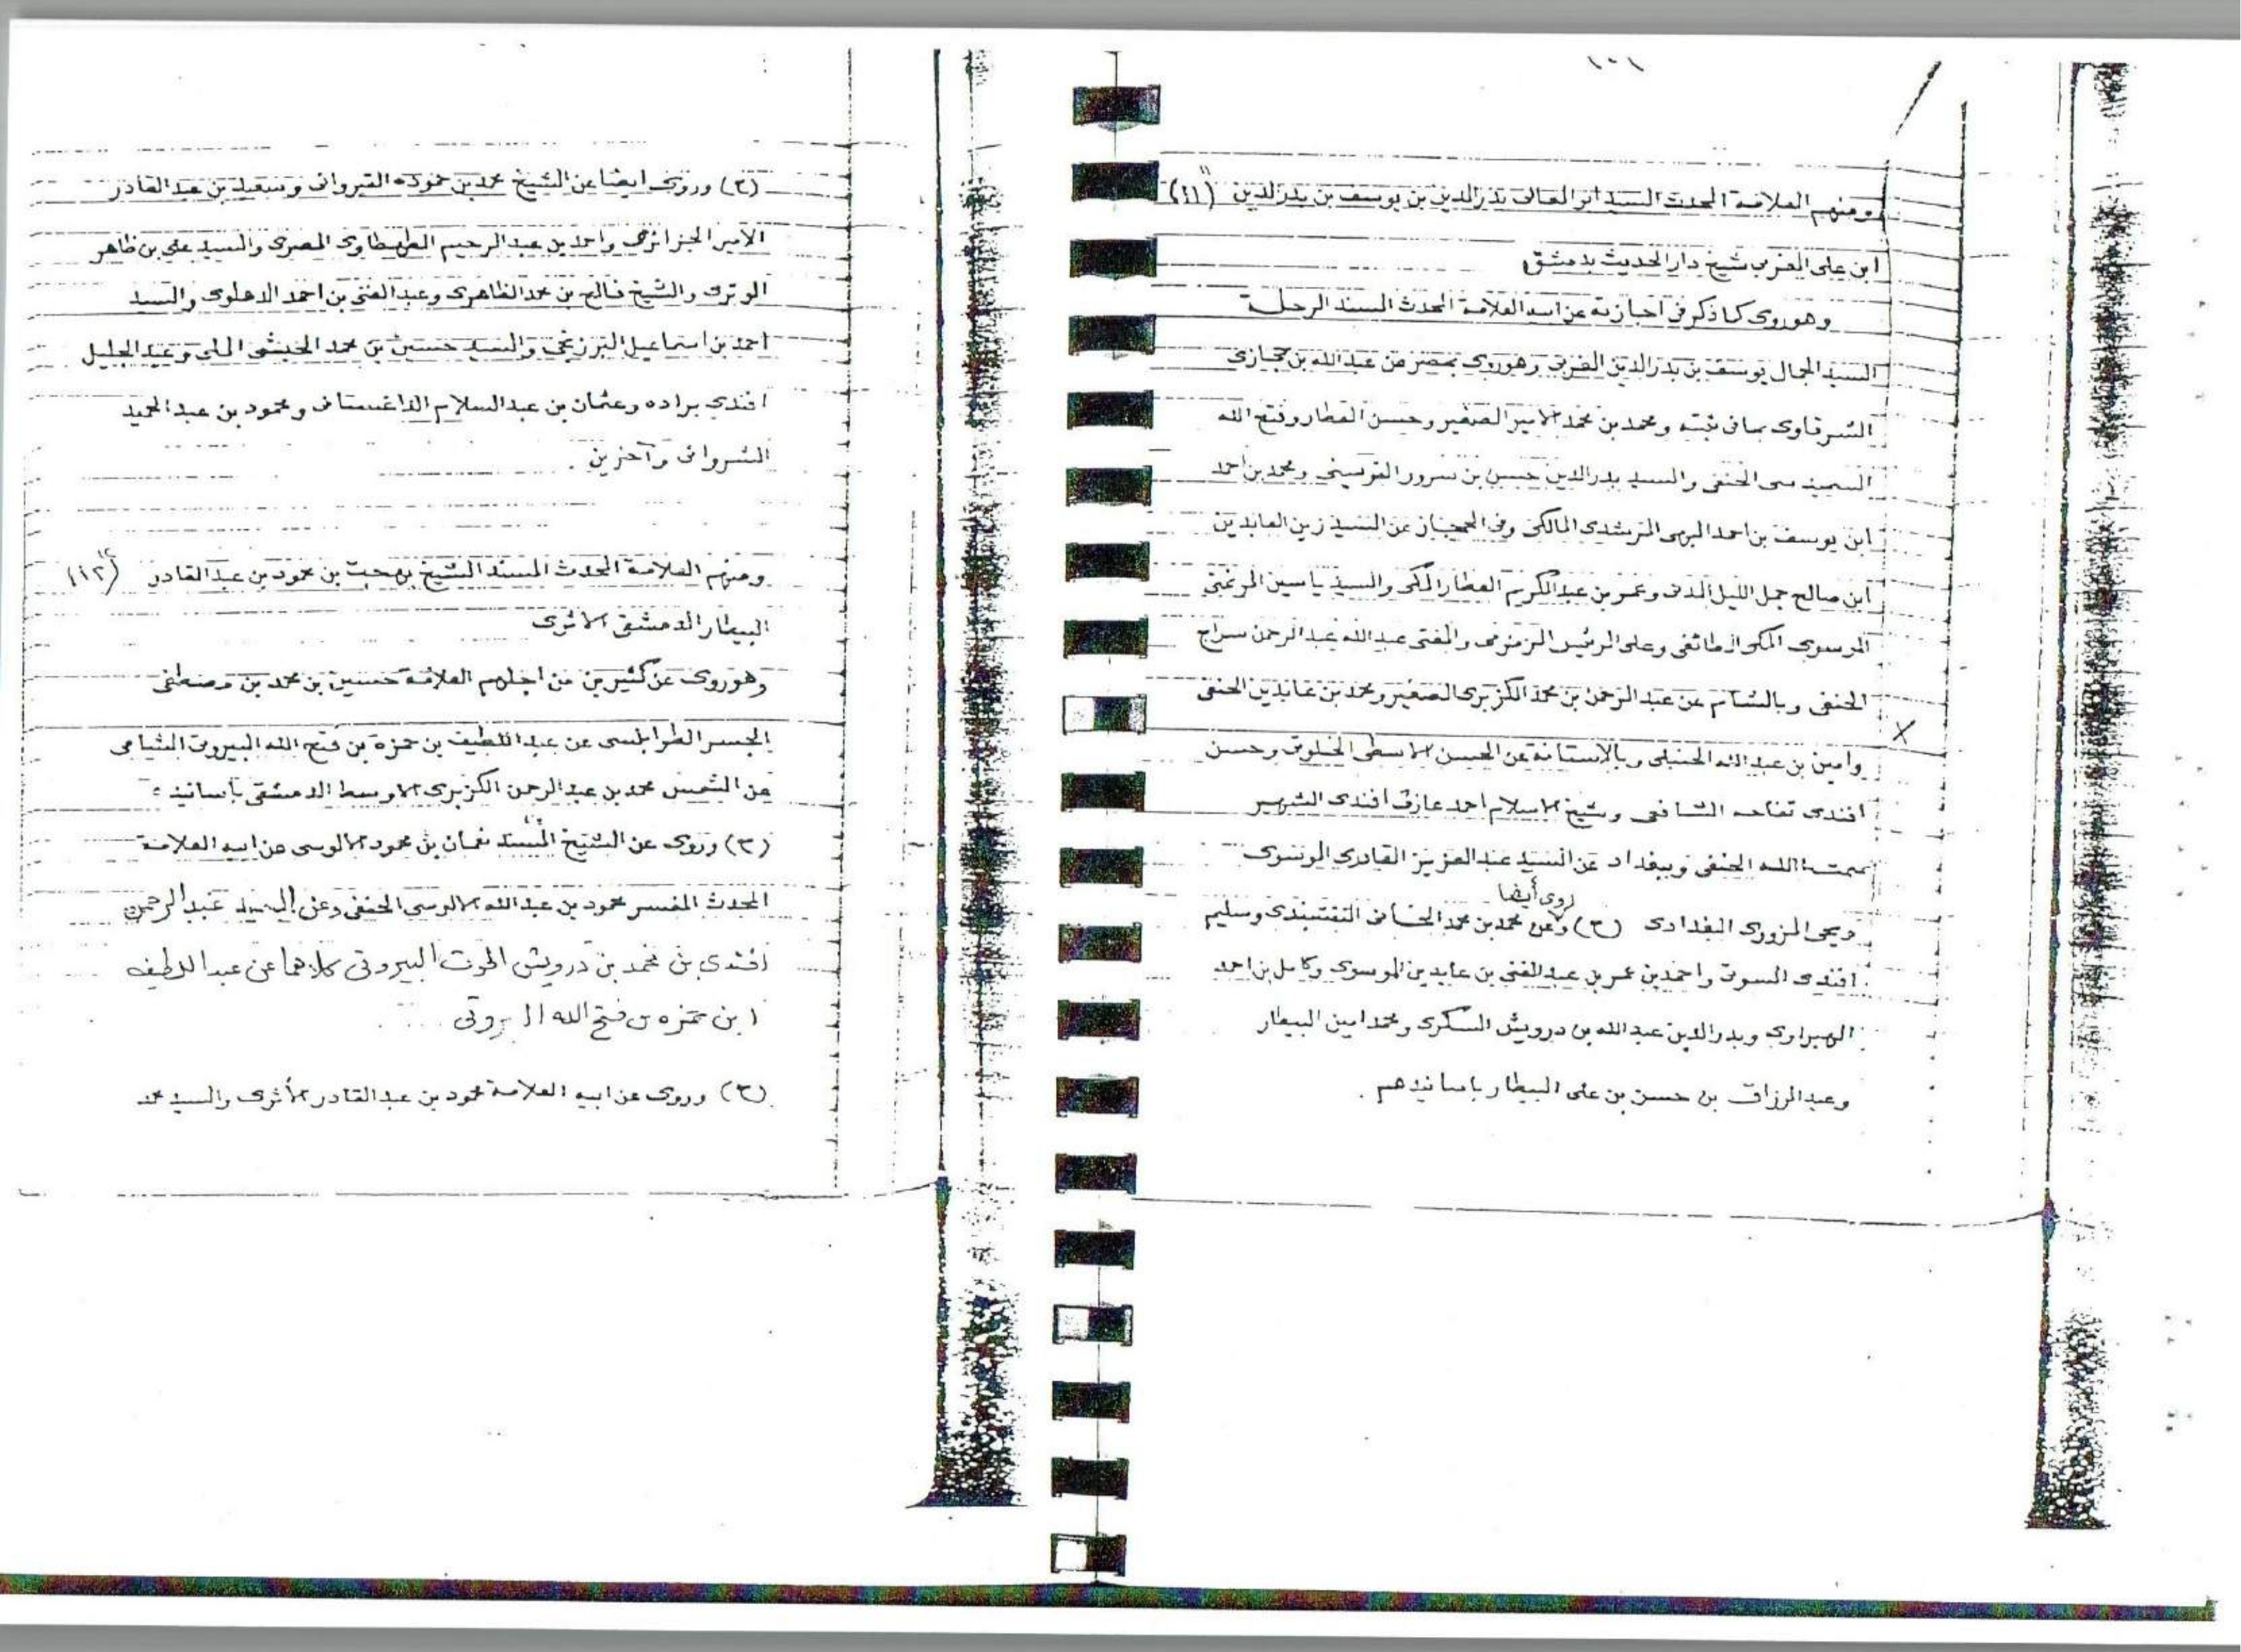 ١٠١
ومنهم العلامة المحدث السيد ابو المعالى بدر الدين بن يوسف بن بدر الدين (١١)
ابن على المغربى شيخ دار الحديث بدمشق
وهو روى كما ذكر فى اجازته عن ابيه العلامة المحدث المسند الرحلة
السيد الجمال يوسف بن بدر الدين المغربى وهو روى بمصر عن عبد الله بن حجازى
الشرقاوى بما فى ثبته ومحمد بن محمد الامير الصغير وحسن العطار وفتح الله
السمديسى الحنفى والسيد بدر الدين حسن بن سرور القويسنى ومحمد بن احمد
ابن يوسف بن احمد البهى المرشدى المالكى وفى الحجاز عن السيد زين العابدين
ابن صالح جمل الليل المدنى وعمر بن عبد الكريم العطار المكى والسيد ياسين المرغنى
الموسوى المكى الطائفى وعلى الرئيس الزمزمى والمفتى عبد الله عبد الرحمن سراج
الحنفى وبالشام عن عبد الرحمن بن محمد الكزبرى الصغير ومحمد بن عابدين الحنفى
وامين بن عبد الله الحنبلى وبالاستانة عن الحسن الاسطى الخلوتى وحسن
افندى تفاحه الشافعى وشيخ الاسلام احمد عارف افندى الشهير
بعصمت الله الحنفى وببغداد عن السيد عبد العزيز القادرى الموسوى
روى أيضا
ويحيى المزورى البغدادى (ح) وعن محمد بن محمد الخانى النقشبندى وسليم
افندى السوتى واحمد بن عمر بن عبد الغنى بن عابدين الموسوى وكامل بن احمد
الهبراوى وبدر الدين عبد الله بن درويش السكرى ومحمد امين البيطار
وعبد الرزاق بن حسن بن على البيطار باسانيدهم .
(ح) وروى ايضا عن الشيخ محمد بن حموده القيروانى وسعيد بن عبد القادر
الامير الجزائرى واحمد بن عبد الرحيم الطهطاوى المصرى والسيد على بن ظاهر
الوترى والشيخ فالح بن محمد الظاهرى وعبد الغنى بن احمد الدهلوى والسيد
احمد بن اسماعيل البرزنجى والسيد حسين بن محمد الحبشى المكى وعبد الجليل
افندى براده وعثمان بن عبد السلام الداغستانى ومحمود بن عبد الحميد
الشروانى وآخرين .
ومنهم العلامة المحدث المسند الشيخ بهجت بن محمود بن عبد القادر (١٢)
البيطار الدمشقى الاثرى
وهو روى عن كثيرين من اجلهم العلامة حسين بن محمد بن مصطفى
الجسر الطرابلسى عن عبد اللطيف بن حمزة بن فتح الله البيروتى الشامى
عن الشمس محمد بن عبد الرحمن الكزبرى الاوسط الدمشقى بأسانيده
(ح) وروى عن الشيخ المسند نعمان بن محمود الالوسى عن ابيه العلامة
المحدث المفسر محمود بن عبد الله الالوسى الحنفى وعن السيد عبد الرحمن
افندى بن محمد بن درويش الحوت البيروتى كلاهما عن عبد اللطيف
ابن حمزه بن فتح الله البيروتى
(ح) وروى عن ابيه العلامة محمود بن عبد القادر الأثرى والسيد محمد